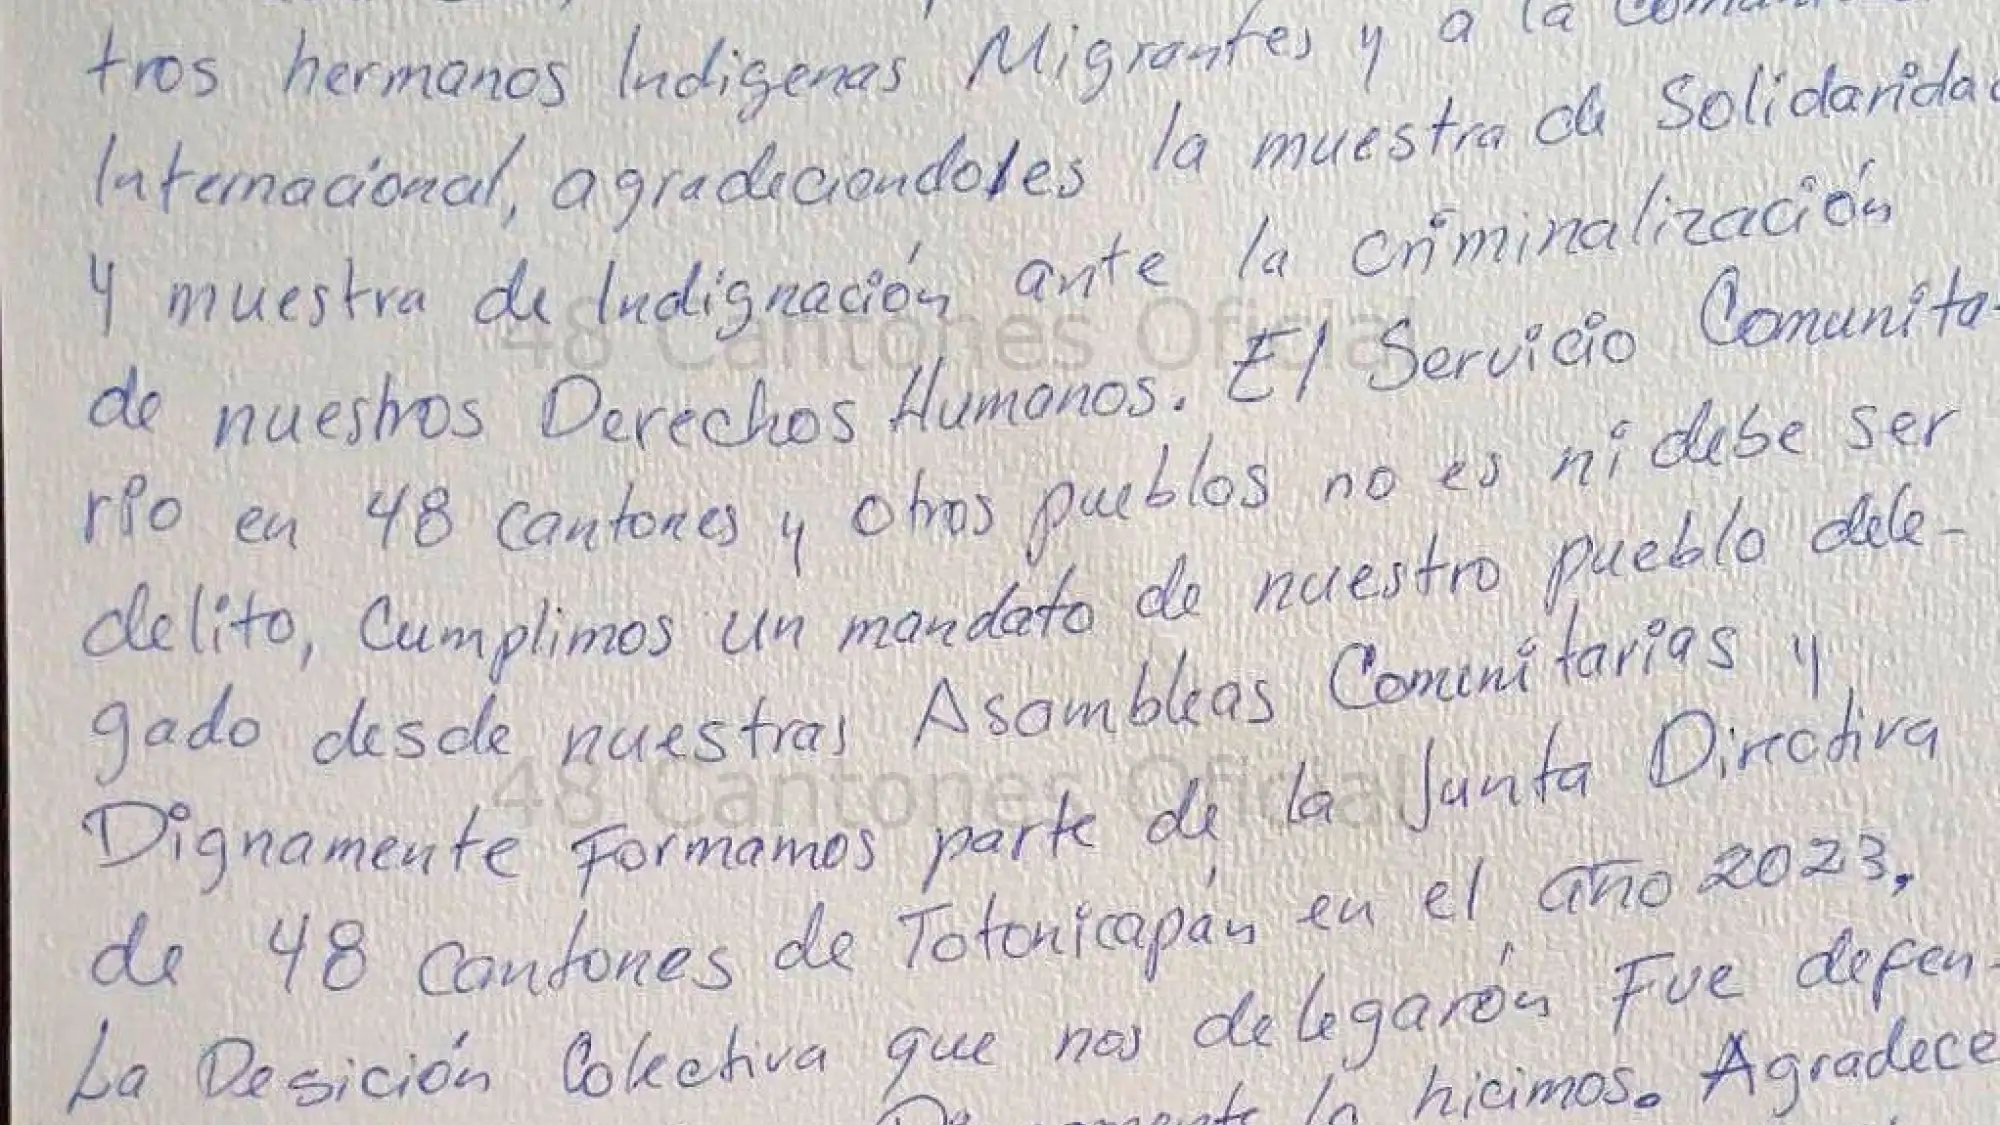 tros hermanos Indigenas Migrantes y a la
Internacional, agradeciendoles la muestra de Solidaridad
y muestra de Indignación ante la criminalización
de nuestros Derechos Humanos. El Servicio Comunita-
rio en 48 cantones y otros pueblos no es ni debe ser
delito, Cumplimos un mandato de nuestro pueblo dele-
gado desde nuestras Asambleas Comunitarias y
Dignamente Formamos parte de la Junta Directiva
de 48 cantones de Totonicapán en el año 2023.
La Desición Colectiva que nos delegarón Fue defen-
la hicimos. Agradece
48 Cantones Oficial
48 Cantones Oficial